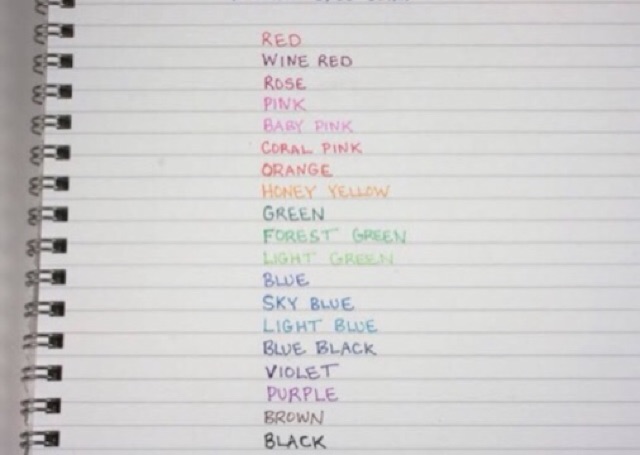 RED
WINE RED
ROSE
PINK
BABY PINK
CORAL PINK
ORANGE
HONEY YELLOW
GREEN
FOREST GREEN
LIGHT GREEN
BLUE
SKY BLUE
LIGHT BLUE
BLUE BLACK
VIOLET
PURPLE
BROWN
BLACK